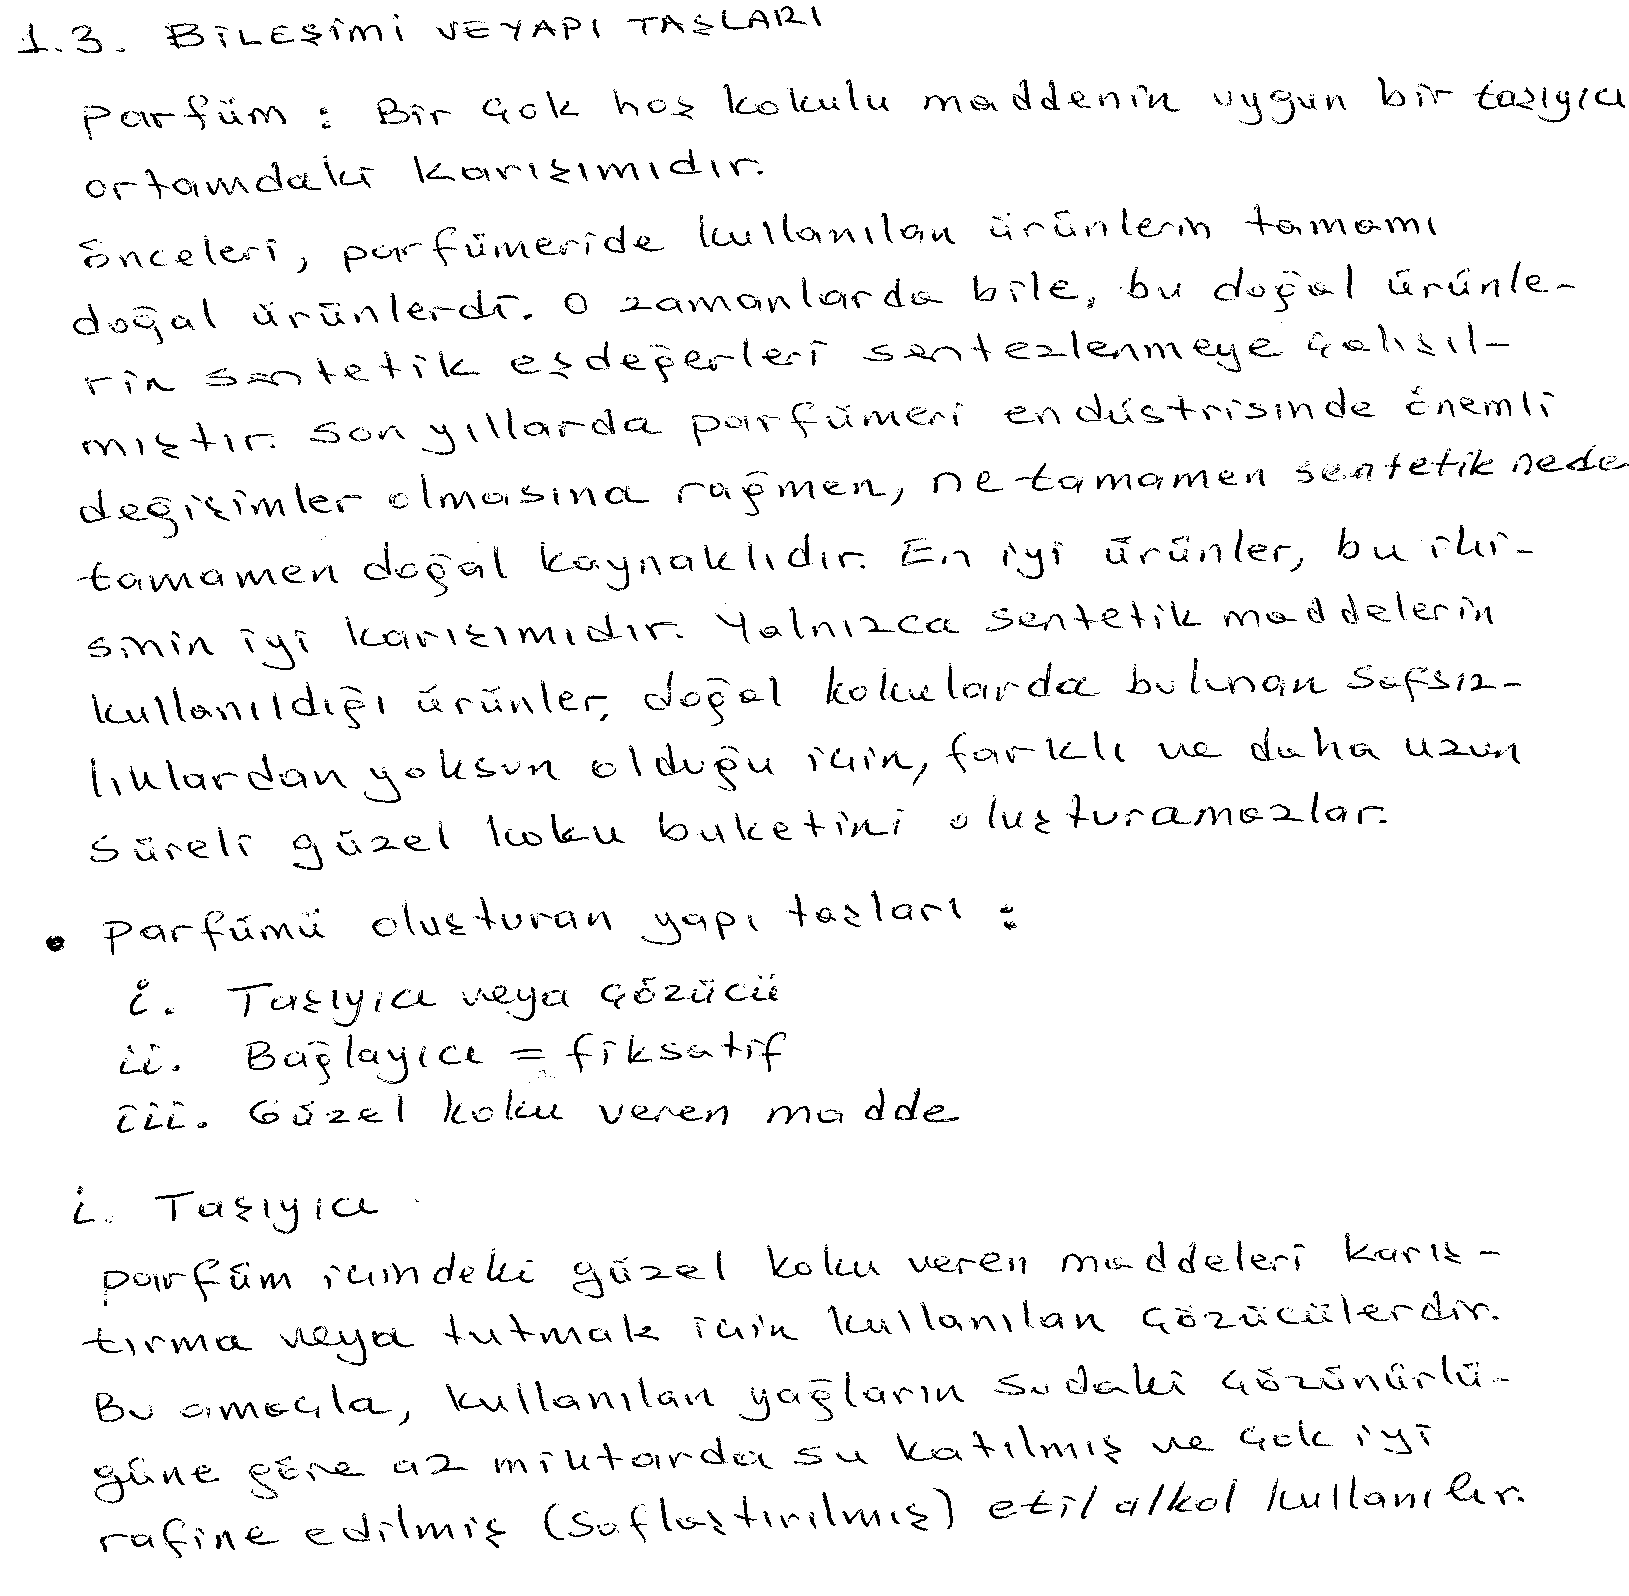 1.3. BİLEŞİMİ VE YAPI TAŞLARI
Parfüm : Bir çok hoş kokulu maddenin uygun bir taşıyıcı
ortamdaki karışımıdır.
Önceleri, parfümeride kullanılan ürünlerin tamamı
doğal ürünlerdi. O zamanlarda bile, bu doğal ürünle-
rin sentetik eşdeğerleri sentezlenmeye çalışıl-
mıştır. Son yıllarda parfümeri endüstrisinde önemli
değişimler olmasına rağmen, ne tamamen sentetik nede
tamamen doğal kaynaklıdır. En iyi ürünler, bu iki-
sinin iyi karışımıdır. Yalnızca sentetik maddelerin
kullanıldığı ürünler, doğal kokularda bulunan safsız-
lıklardan yoksun olduğu için, farklı ve daha uzun
süreli güzel koku buketini oluşturamazlar.
• Parfümü oluşturan yapı taşları :
i. Taşıyıcı veya çözücü
ii. Bağlayıcı = fiksatif
iii. Güzel koku veren madde
i. Taşıyıcı
Parfüm içindeki güzel koku veren maddeleri karış-
tırma veya tutmak için kullanılan çözücülerdir.
Bu amaçla, kullanılan yağların sudaki çözünürlü-
ğüne göre az miktarda su katılmış ve çok iyi
rafine edilmiş (saflaştırılmış) etil alkol kullanılır.